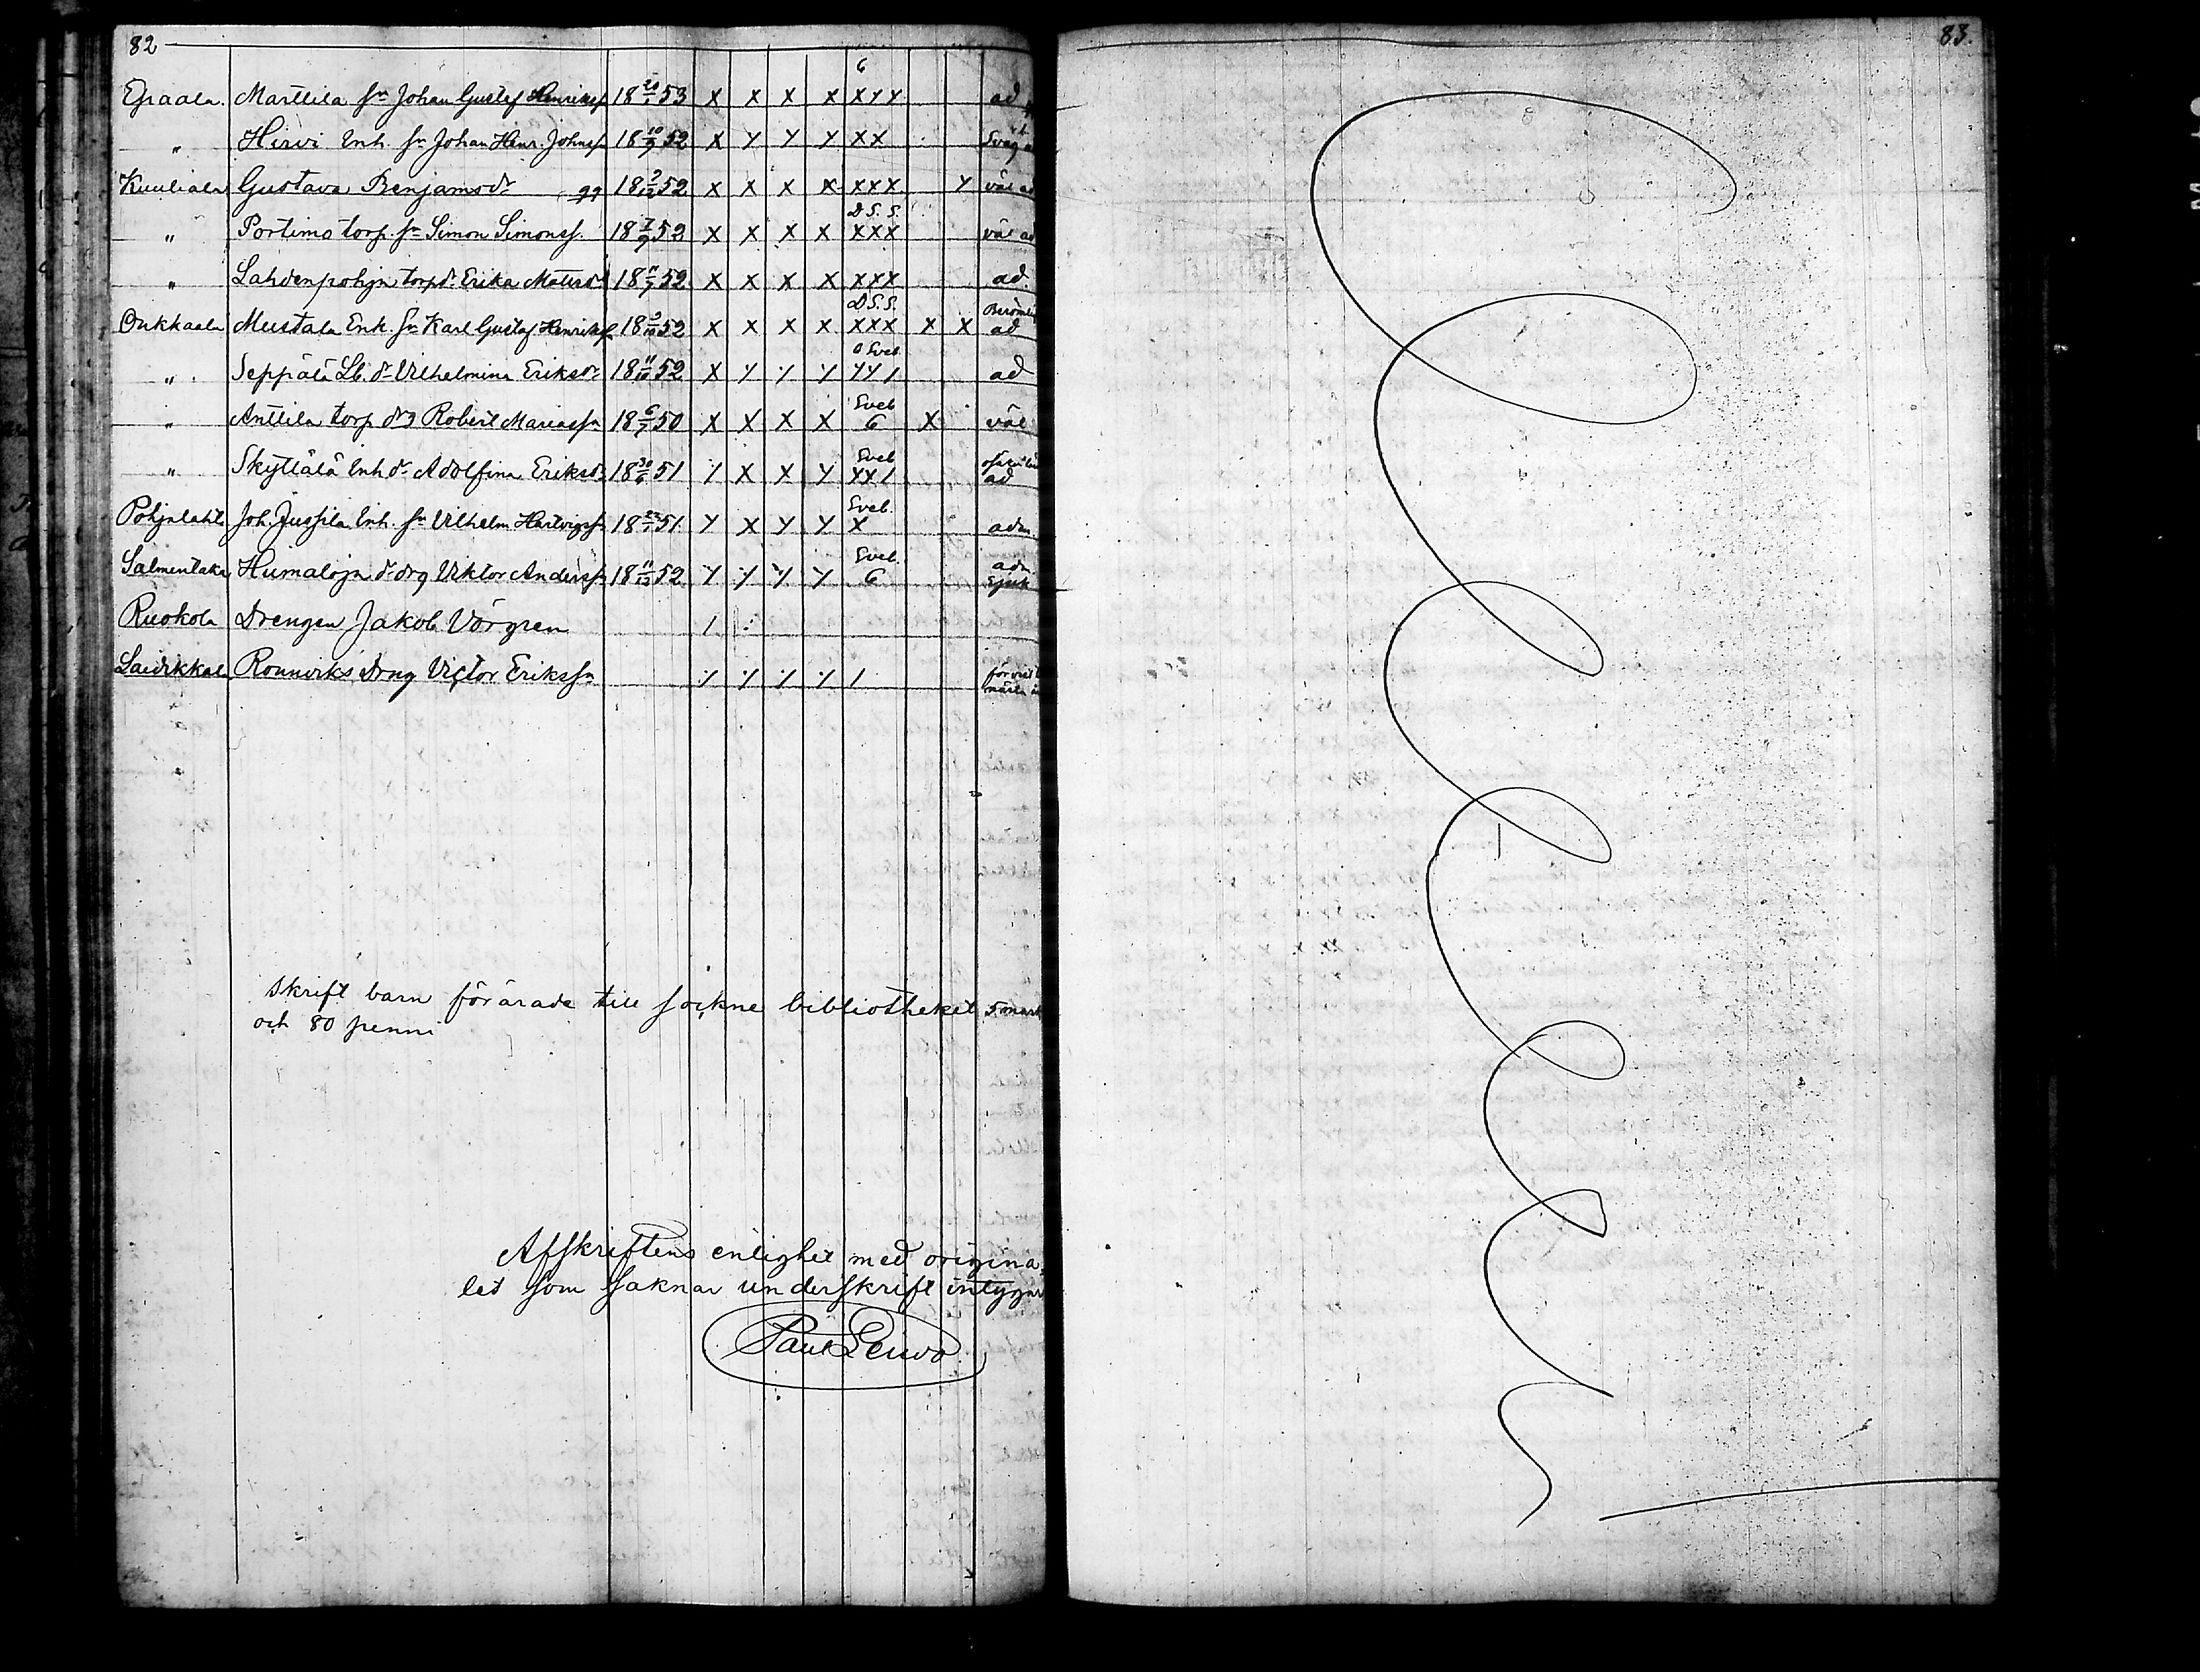 82
83.
6
Epaala. Marttila sn Johan Gustaf Henrikss 18 20/1 53 X X X X X Y Y ad
" Hirvi Inh. sn Johan Henr. Johnss 18 10/9 52 X Y Y Y X X Svag
Kuuliala Gustava Benjamsdr 18 2/12 52 X X X X XXX Y väl
D S. S.
" Portimo torp. sn Simon Simonss. 18 7/9 52 X X X X XXX väl
" Lahdenpohja torpdr Erika Mattsdr 18 11/7 52 X X X X XXX ad.
D S. S.
Onkkaala Mustala Enk. sn Karl Gustaf Henrikss 18 2/10 52 X X X X XXX X X ad
Sveb.
" Seppälä Lb. dr Vilhelmina Eriksdr 18 11/10 52 X Y Y Y Y Y 1 ad
Sveb
" Anttila torp drg Robert Mariassn 18 6/7 50 X X X X 6 X väl
Sveb
" Skyttälä Inh dr Adolfina Eriksdr 18 30/6 51 Y X X Y XX 1 ad
Sveb.
Pohjalahti Joh. Jussila Inh. sn Vilhelm Hartvigss 18 22/1 51 Y X Y Y X adm
Sveb. adm
Salmentaka Humaloja d. drg Viktor Anderss 18 11/12 52 Y Y Y Y 6 Sjuk
Ruokola Drengen Jakob Vörgren 1
Laitikkala Rounviks Drng Victor Erikssn Y Y Y Y 1
Skrift barn förärade till sockne bibliotheket 5 mark
och 80 penni
Afskriftens enlighet med origina-
let som saknar underskrift intygar
Paul Leivo